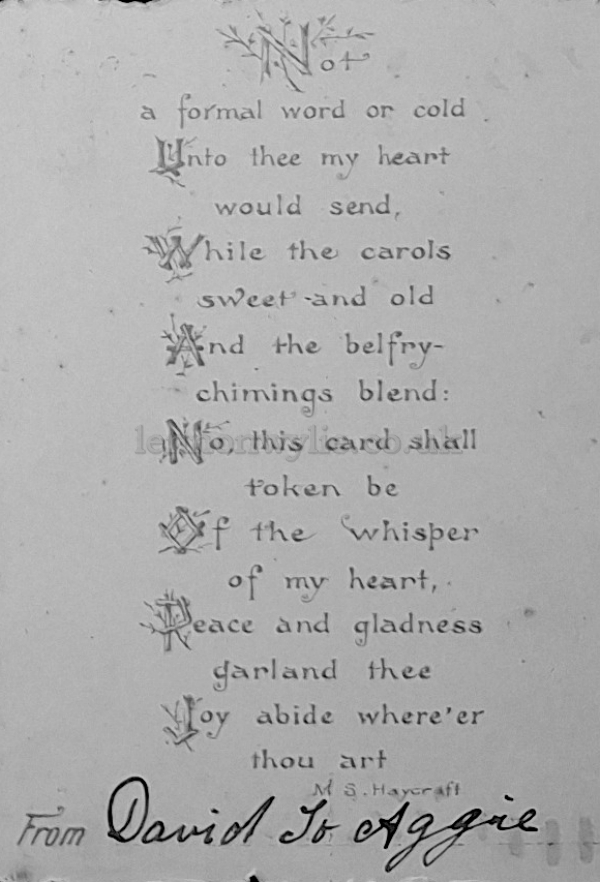 Not
a formal word or cold
Unto thee my heart
would send,
While the carols
sweet and old
And the belfry-
chimings blend:
No, this card shall
token be
Of the whisper
of my heart,
Peace and gladness
garland thee
Joy abide where'er
thou art
M S. Haycraft
From David To Aggie